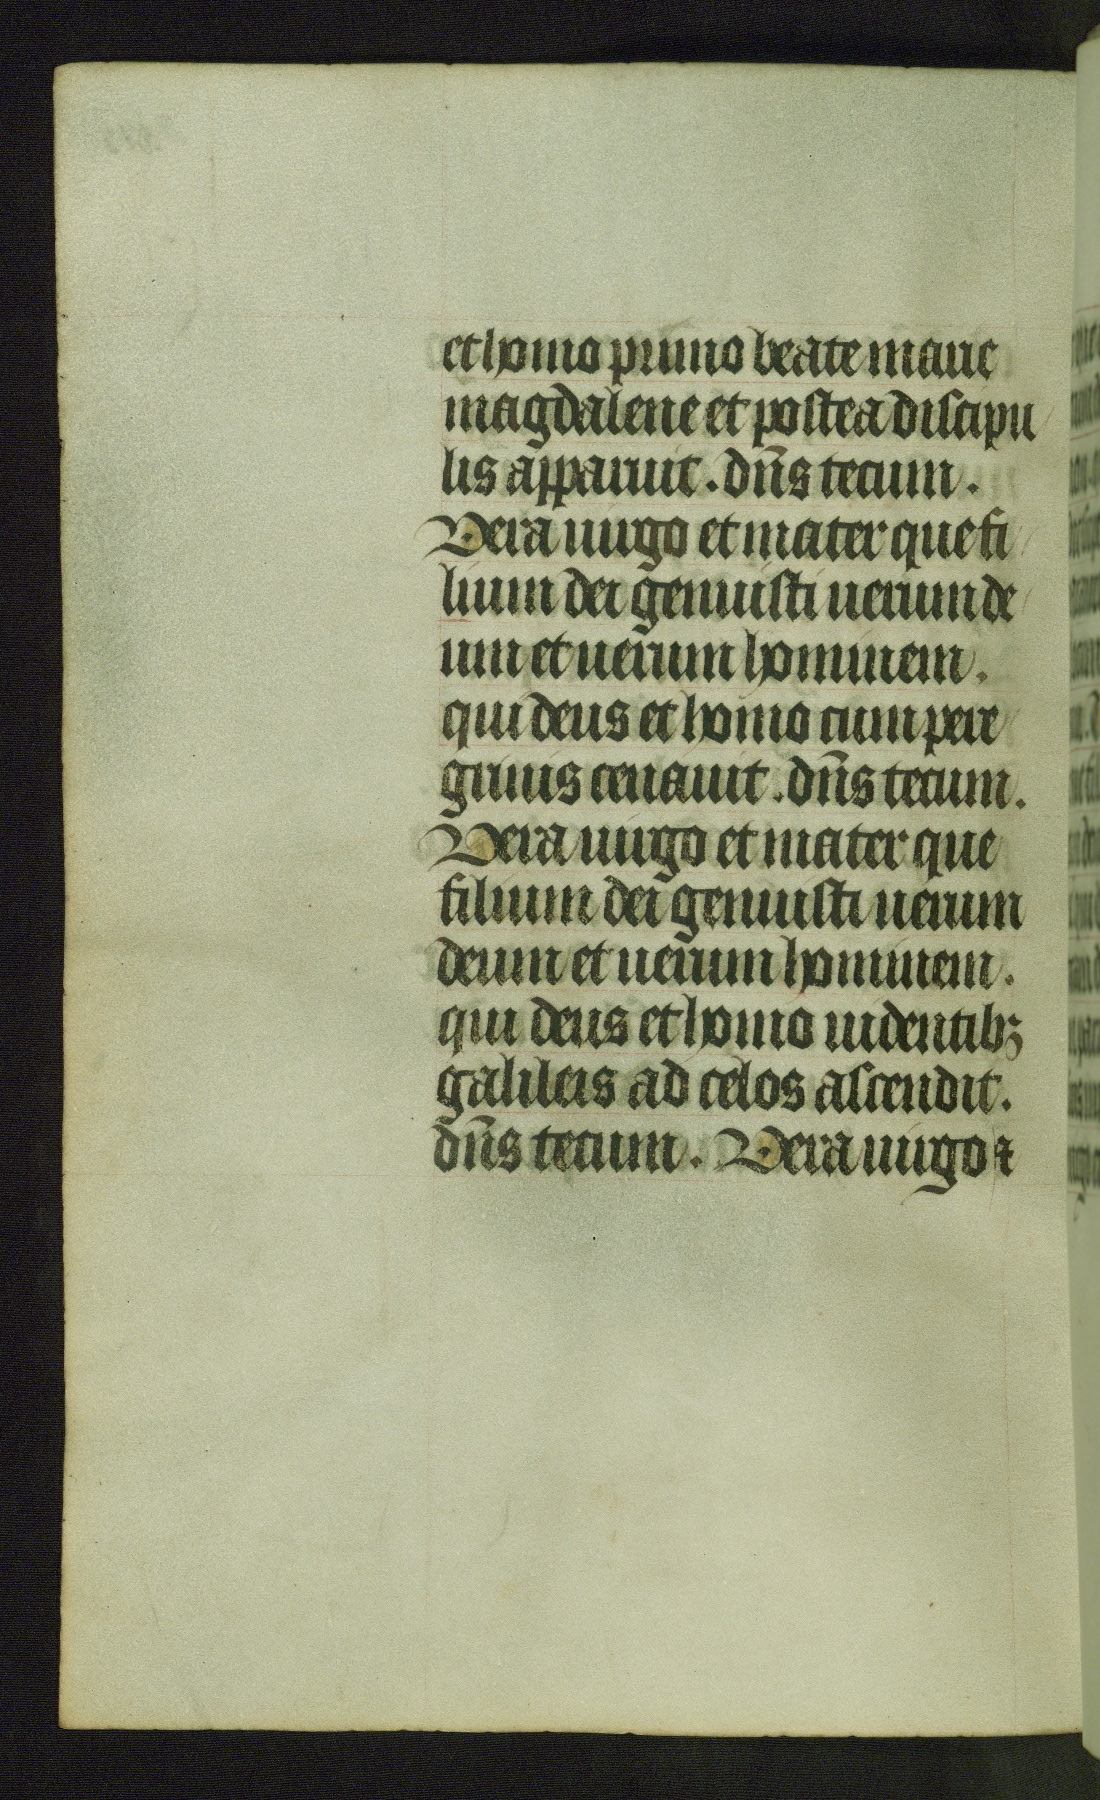 et homo primo beate marie
magdalene et postea discipu
lis apparuit. dn̄s tecum.
Vera uirgo et mater que fi
lium dei genuisti uerum de
um et uerum hominem.
qui deus et homo cum pere
grinis cenauit. dn̄s tecum.
Vera uirgo et mater que
filium dei genuisti uerum
deum et uerum hominem.
qui deus et homo uidentibꝫ
galileis ad celos ascendit.
dn̄s tecum. Vera uirgo ⁊